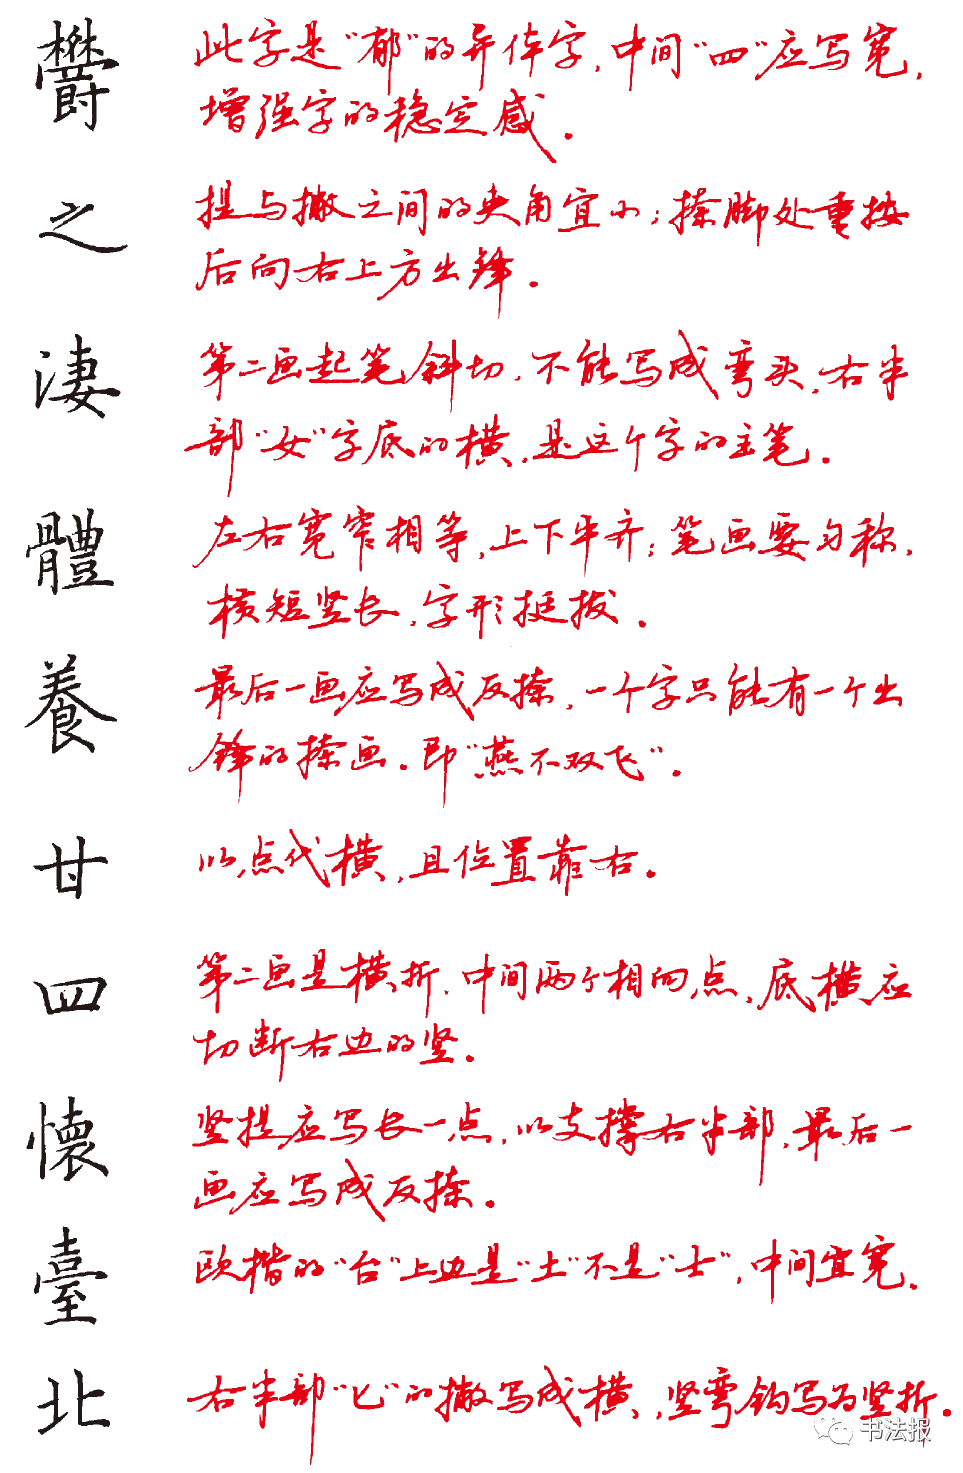 欝 此字是“郁”的异体字,中间“四”应写宽,
增强字的稳定感.
之 提与撇之间的夹角宜小;捺脚处重按
后向右上方出锋.
淒 第二画起笔斜切,不能写成弯头,右半
部“女”字底的横,是这个字的主笔.
體 左右宽窄相等,上下平齐;笔画要匀称,
横短竖长,字形挺拔.
養 最后一画应写成反捺,一个字只能有一个出
锋的捺画.即“燕不双飞”.
甘 以点代横,且位置靠右.
四 第二画是横折,中间两个相向点,底横应
切断右边的竖.
懷 竖提应写长一点,以支撑右半部,最后一
画应写成反捺.
臺 欧楷的“台”上边是“土”不是“士”,中间宜宽.
北 右半部“匕”的撇写成横,竖弯钩写为竖折.
书法报